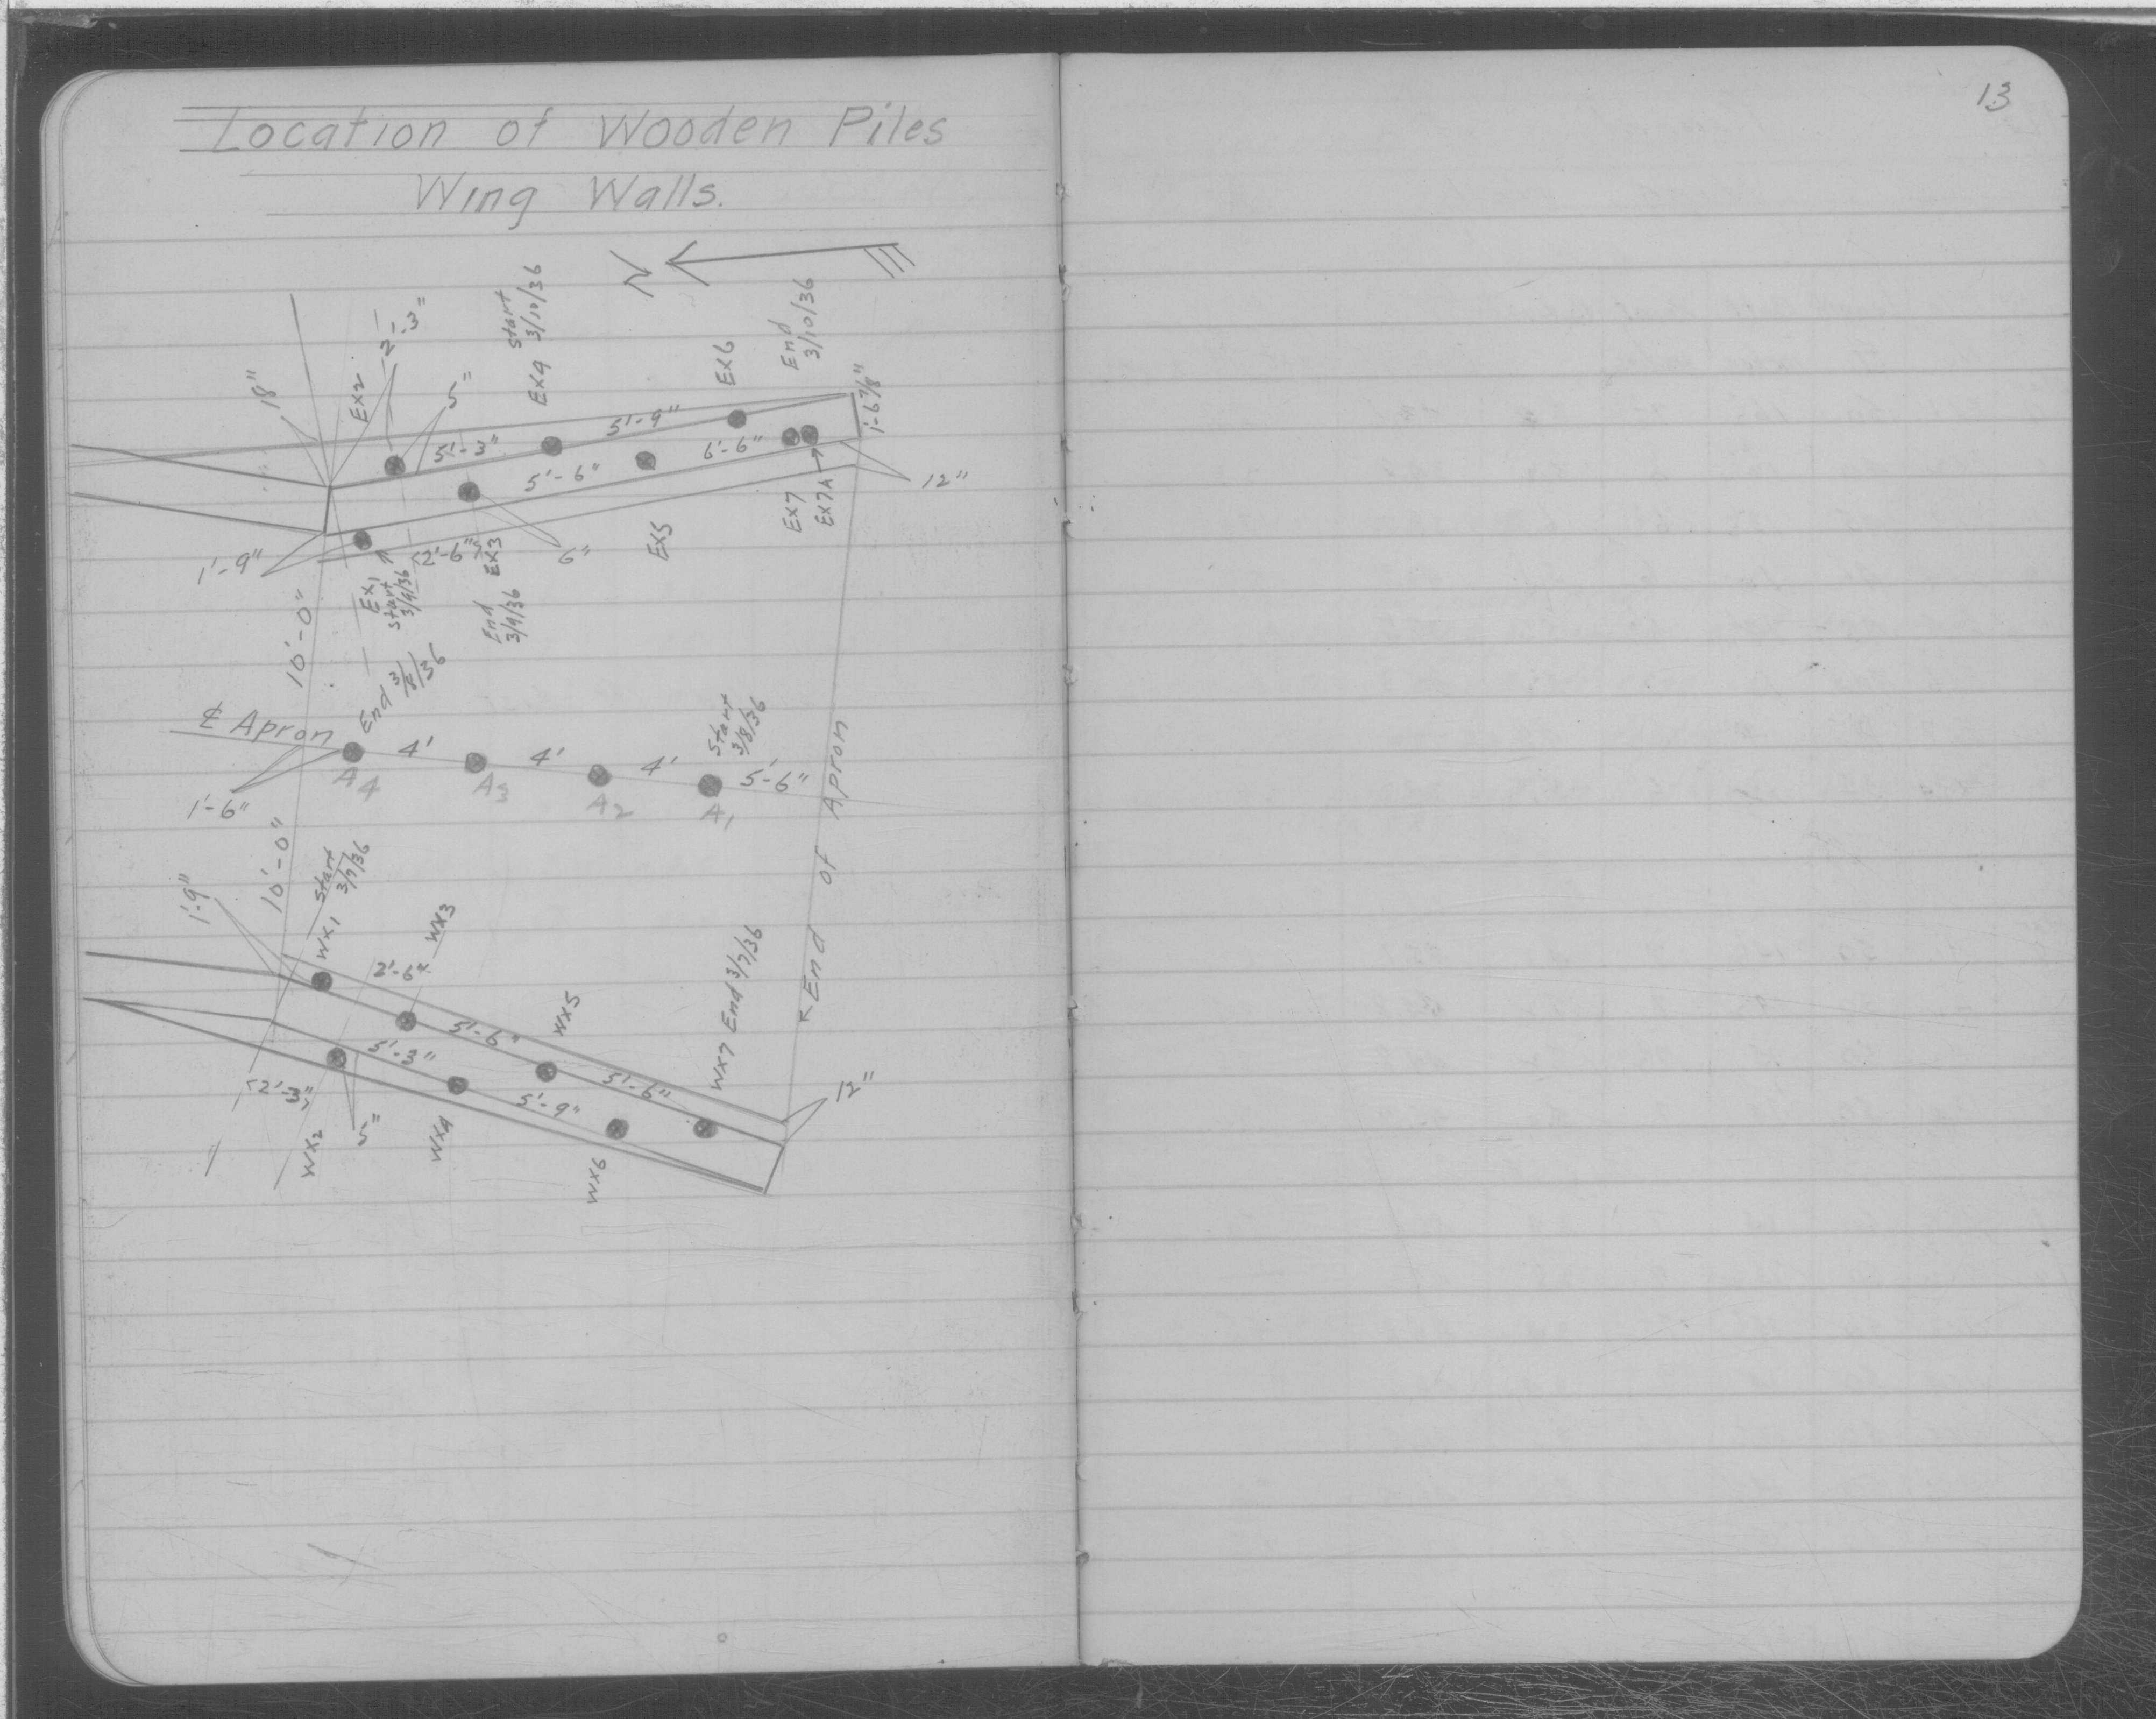 13
Location of Wooden Piles
Wing Walls.
N
18"
Ex2
2'-3"
5"
Ex4
Start
3/10/36
Ex6
End
3/10/36
1'-6 7/8"
5'-3"
5'-9"
5'-6"
6'-6"
12"
1'-9"
Ex1
Start
3/9/36
2'-6"
Ex3
End
3/9/36
6"
Ex5
Ex7
Ex7A
10'-0"
℄ Apron
End 3/8/36
4'
4'
4'
Start
3/8/36
5'-6"
A4
A3
A2
A1
1'-6"
End of Apron
10'-0"
1'-9"
Wx1
Start
3/7/36
2'-6"
Wx3
5'-6"
Wx5
5'-6"
Wx7 End 3/7/36
5'-3"
5'-9"
2'-3"
5"
Wx2
Wx4
Wx6
12"